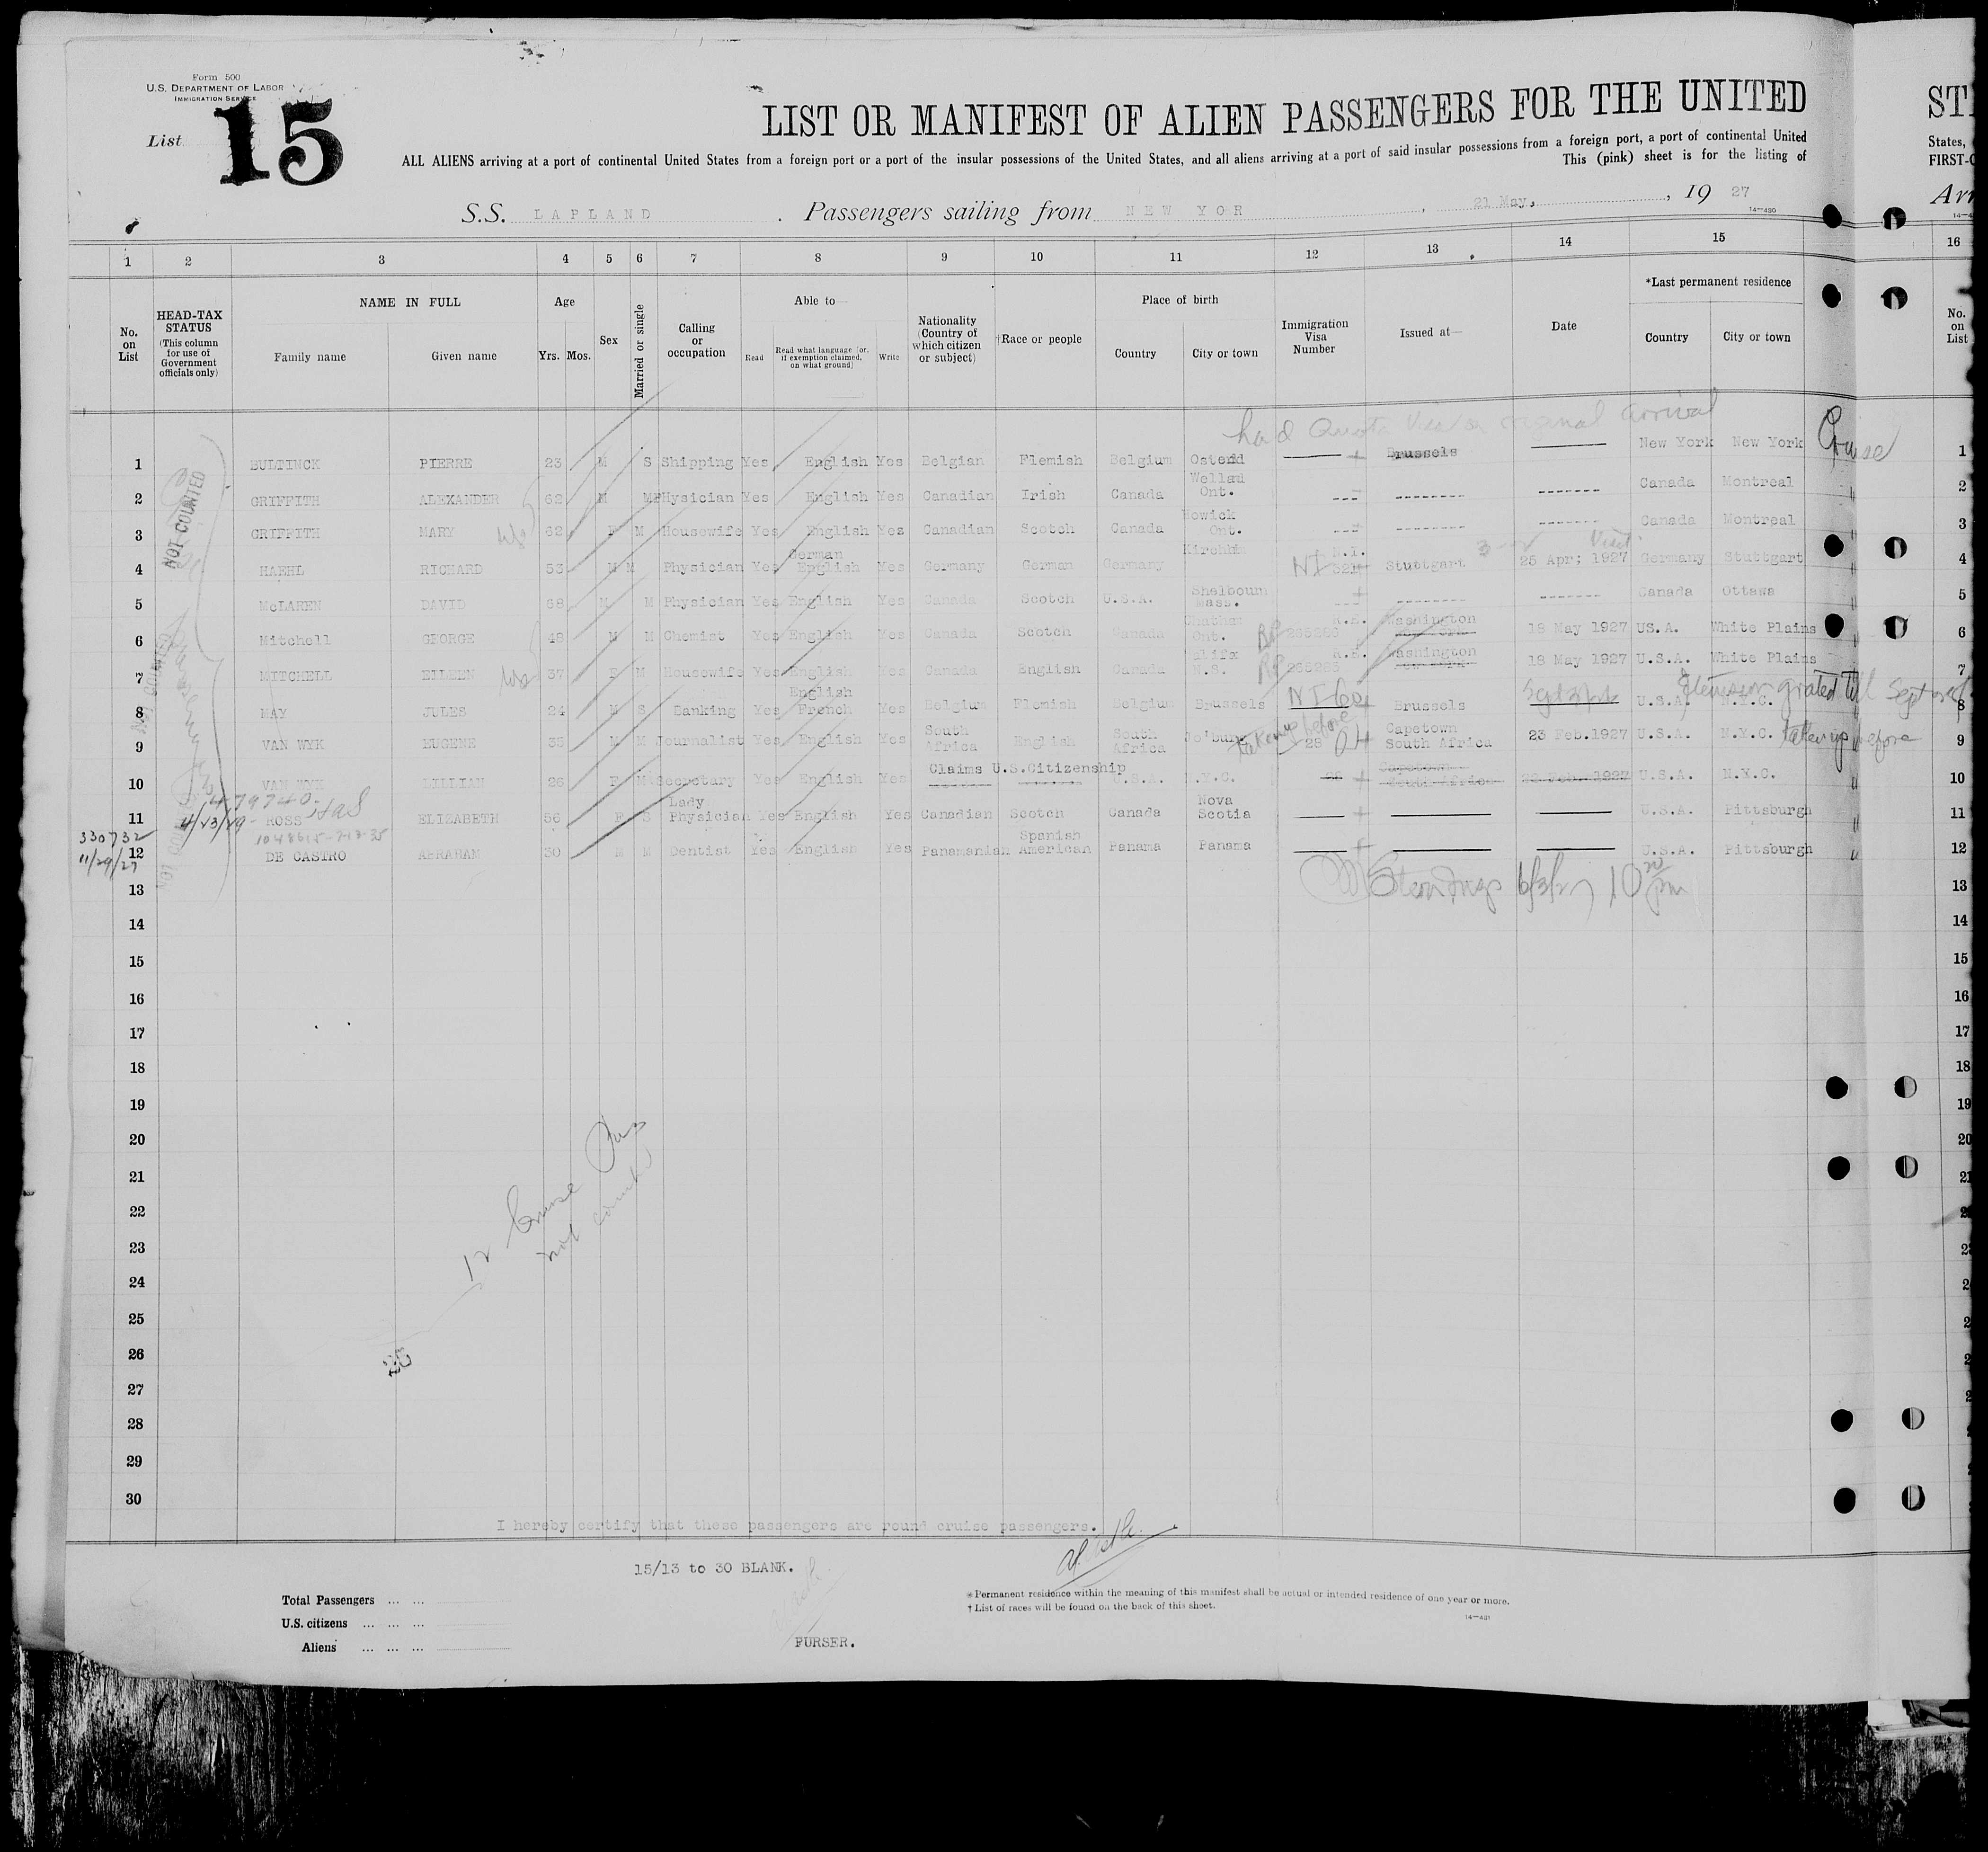 Form 500
U.S. DEPARTMENT OF LABOR
IMMIGRATION SERVICE
List 15
LIST OR MANIFEST OF ALIEN PASSENGERS FOR THE UNITED
ALL ALIENS arriving at a port of continental United States from a foreign port or a port of the insular possessions of the United States, and all aliens arriving at a port of said insular possessions from a foreign port, a port of continental United
This (pink) sheet is for the listing of
States,
S.S. LAPLAND. Passengers sailing from NEW YOR, 21 May, , 19 27
14-430
1 2 3 4 5 6 7 8 9 10 11 12 13 14 15 16
No. on List
HEAD-TAX STATUS (This column for use of Government officials only)
NAME IN FULL Family name Given name
Age Yrs. Mos.
Sex
Married or single
Calling or occupation
Able to— Read Read what language (or, if exemption claimed, on what ground) Write
Nationality (Country of which citizen or subject)
†Race or people
Place of birth Country City or town
Immigration Visa Number
Issued at—
Date
*Last permanent residence Country City or town
No. on List
had Quota Visa on original arrival
1 BULTINCK PIERRE 23 M S Shipping Yes English Yes Belgian Flemish Belgium Ostend Brussels New York New York Cruise 1
2 GRIFFITH ALEXANDER 62 M M PHysician Yes English Yes Canadian Irish Canada Wellau Ont. --- -------- ------- Canada Montreal 2
3 GRIFFITH MARY 62 F M Housewife Yes English Yes Canadian Scotch Canada Howick Ont. --- -------- ------- Canada Montreal 3
4 HAEHL RICHARD 53 M M Physician Yes German English Yes Germany German Germany N.I. Stuttgart 25 Apr; 1927 Visit Germany Stuttgart 4
5 McLAREN DAVID 68 M M Physician Yes English Yes Canada Scotch U.S.A. Shelbourn Mass. --- -------- ------- Canada Ottawa 5
6 Mitchell GEORGE 48 M M Chemist Yes English Yes Canada Scotch Canada Chatham Ont. RP 265286 Washington New York 18 May 1927 US.A. White Plains 6
7 MITCHELL EILEEN 37 F M Housewife Yes English Yes Canada English Canada Halifx N.S. RP 265285 Washington New York 18 May 1927 U.S.A. White Plains 7
8 MAY JULES 24 M S Banking Yes English French Yes Belgium Flemish Belgium Brussels NI 60 Brussels U.S.A. N.Y.C. Extension granted till Sept 8
9 VAN WYK EUGENE 35 M M Journalist Yes English Yes South Africa English South Africa Jo'burg taken up before 28 Capetown South Africa 23 Feb.1927 U.S.A. N.Y.C. taken up before 9
10 VAN WYK LILLIAN 26 F M Secretary Yes English Yes Claims U.S.Citizenship U.S.A. N.Y.C. 28 Capetown South Africa 23 Feb. 1927 U.S.A. N.Y.C. 10
479740-
4/23/29-
11 ROSS ELIZABETH 56 F S Lady Physician Yes English Yes Canadian Scotch Canada Nova Scotia U.S.A. Pittsburgh 11
330732
11/29/27
12 DE CASTRO ABRAHAM 30 M M Dentist Yes English Yes Panamanian Spanish American Panama Panama U.S.A. Pittsburgh 12
NOT COUNTED
NOT COUNTED
13 13
14 14
15 15
16 16
17 17
18 18
19 19
20 20
21 21
22
23
24
25
26
27
28
29
30
12 Cruise Pas
not counted
I hereby certify that these passengers are round cruise passengers.
15/13 to 30 BLANK.
Total Passengers ... ...
U.S. citizens ... ... ...
Aliens ... ... ...
PURSER.
*Permanent residence within the meaning of this manifest shall be actual or intended residence of one year or more.
†List of races will be found on the back of this sheet.
14-431